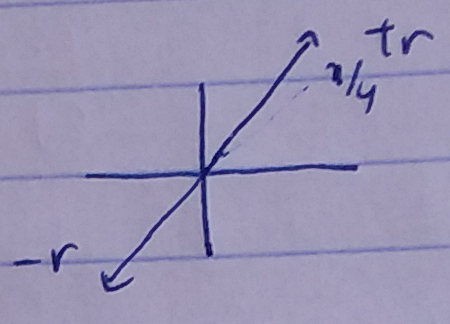 +r
π/4
-r